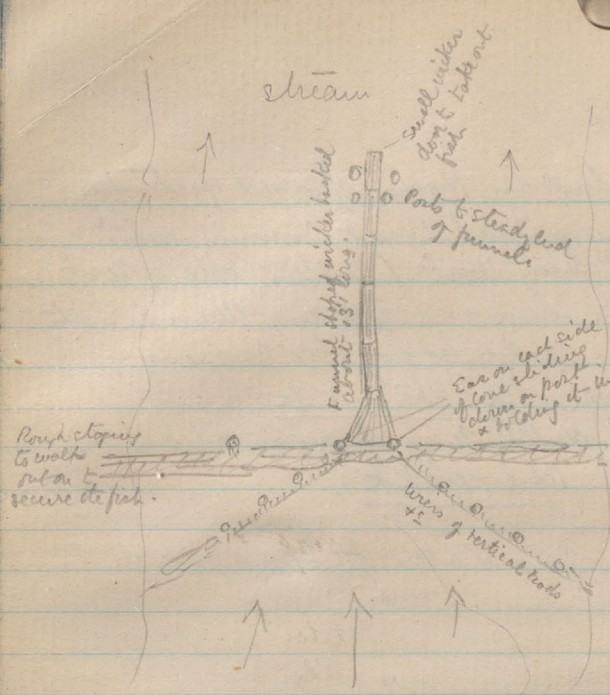 stream
Small wicker
door to take out
fish
Posts to steady end
of funnel.
Funnel shaped wicker basket
about 13' long.
Ear on each side
of cone sliding
down on post
& holding it in
Rough staging
to walk
out on to
secure the fish.
Wiers of vertical rods